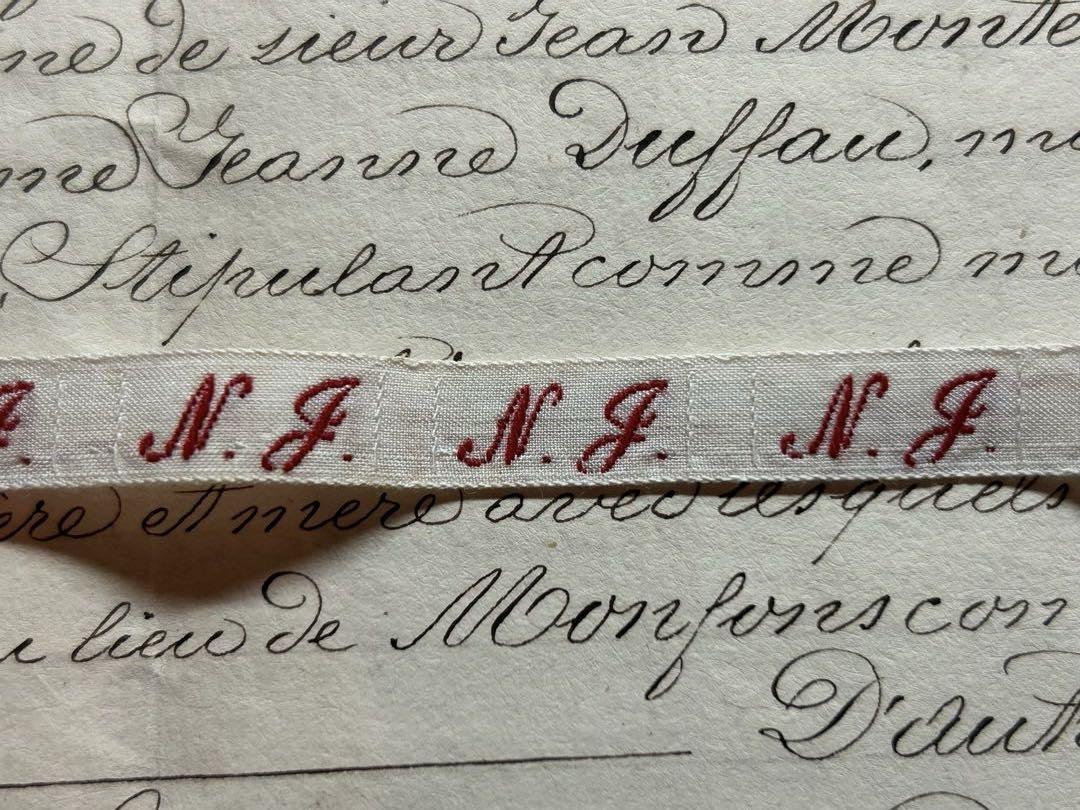 ne de sieur Jean Monte
me Jeanne Duffau, m
, Stipulant comme m
J. N. J. N. J. N. J.
ère et mère avec lesquels
lieu de con
D'aut